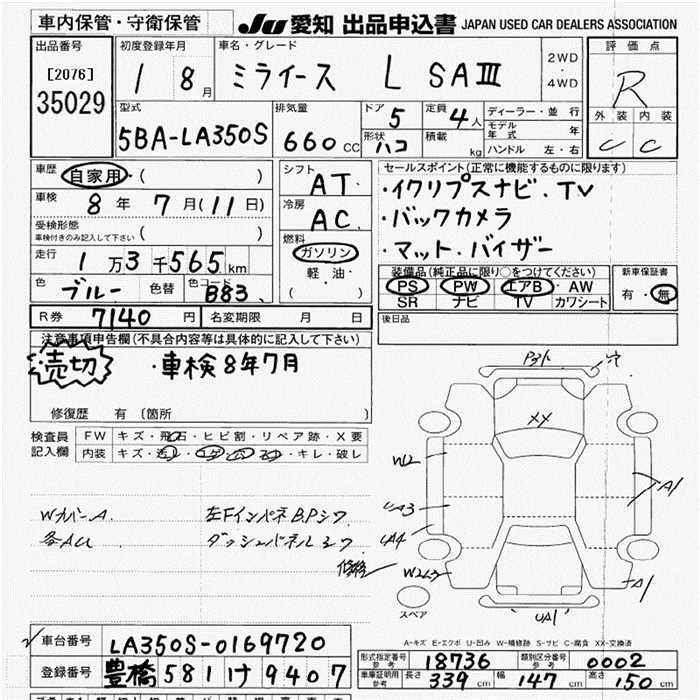 車内保管・守衛保管 JU 愛知 出品申込書 JAPAN USED CAR DEALERS ASSOCIATION
出品番号 初度登録年月 車名・グレード 評価点
[2076] 1 8月 ミライース L SAⅢ 2WD・4WD R
35029
型式 排気量 ドア 5 定員 4人 ディーラー・並行 外装 内装
5BA-LA350S 660cc 形状 ハコ 積載 kg モデル年式 年 C C
ハンドル 左・右
車歴 自家用・( ) シフト AT セールスポイント(正常に機能するものに限ります)
車検 8年 7月(11日) 冷房 AC ・イクリプスナビ.TV
受検形態 ( ) ・バックカメラ
車検付きのみ記入して下さい 燃料 ガソリン ・マット.バイザー
走行 1万3千565km 軽油・ 装備品(純正品に限り○をつけてください) 新車保証書
色 ブルー 色替 色コード B83 ( ) PS PW エアB AW 有・無
SR ナビ TV カワシート
R券 7140円 名変期限 月 日 後日品
注意事項申告欄(不具合内容等は具体的に記入して下さい)
売切 ・車検8年7月
修復歴 有 〔箇所 〕
検査員 FW キズ・飛石・ヒビ割・リペア跡・X要
記入欄 内装 キレ・破レ
XX
W2
A1
A3
A4
A1
Wカバー A 左FインパネB.Pシワ
各AU ダッシュパネルシワ
修絡
スペア
UA1
A-キズ E-エクボ U-凹み W-補修跡 S-サビ C-腐食 XX-交換済
車台番号 LA350S-0169720
形式指定番号 参考 18736 類別区分番号 参考 0002
登録番号 豊橋 581 け 9407
車庫証明用 参考 長さ 339cm 幅 147cm 高さ 150cm